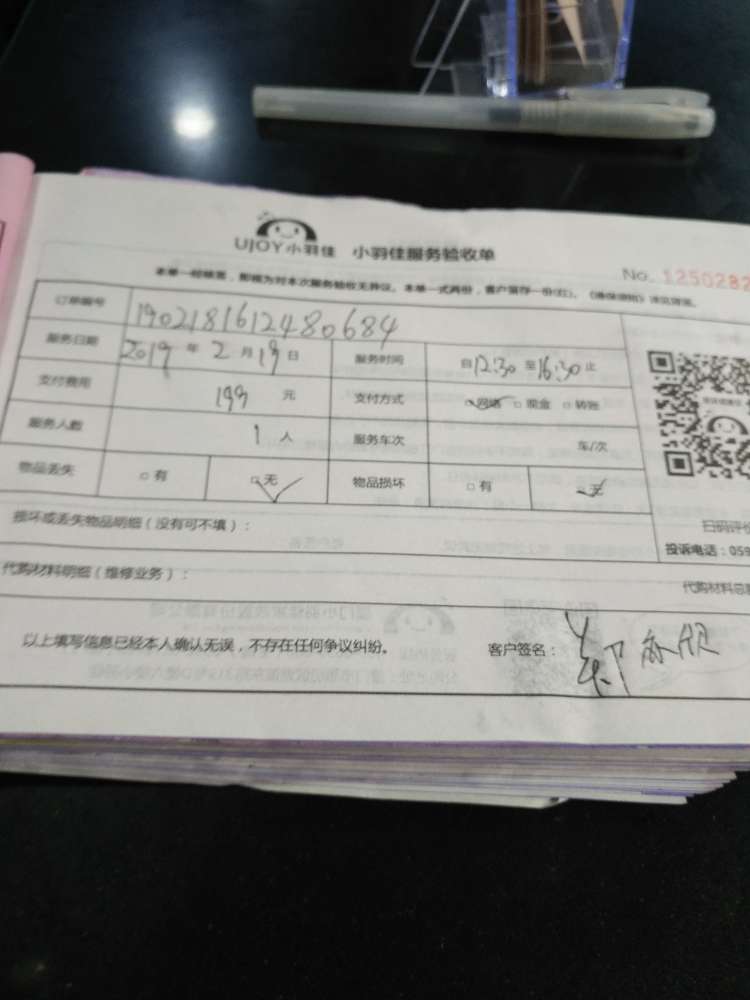 UJOY小羽佳 小羽佳服务验收单
No. 1250282
本单一经签署，即视为对本次服务验收无异议。本单一式两份，客户留存一份(红)。
订单编号 1902181612480684
服务日期 2019年2月19日 服务时间 自12:30至16:30止
支付费用 199元 支付方式 ☑网络 □现金 □转账
服务人数 1人 服务车次 车/次
物品丢失 □有 ☑无 物品损坏 □有 ☑无
损坏或丢失物品明细（没有可不填）：
扫码评价
投诉电话：059
代购材料明细（维修业务）：
代购材料总
以上填写信息已经本人确认无误，不存在任何争议纠纷。 客户签名：